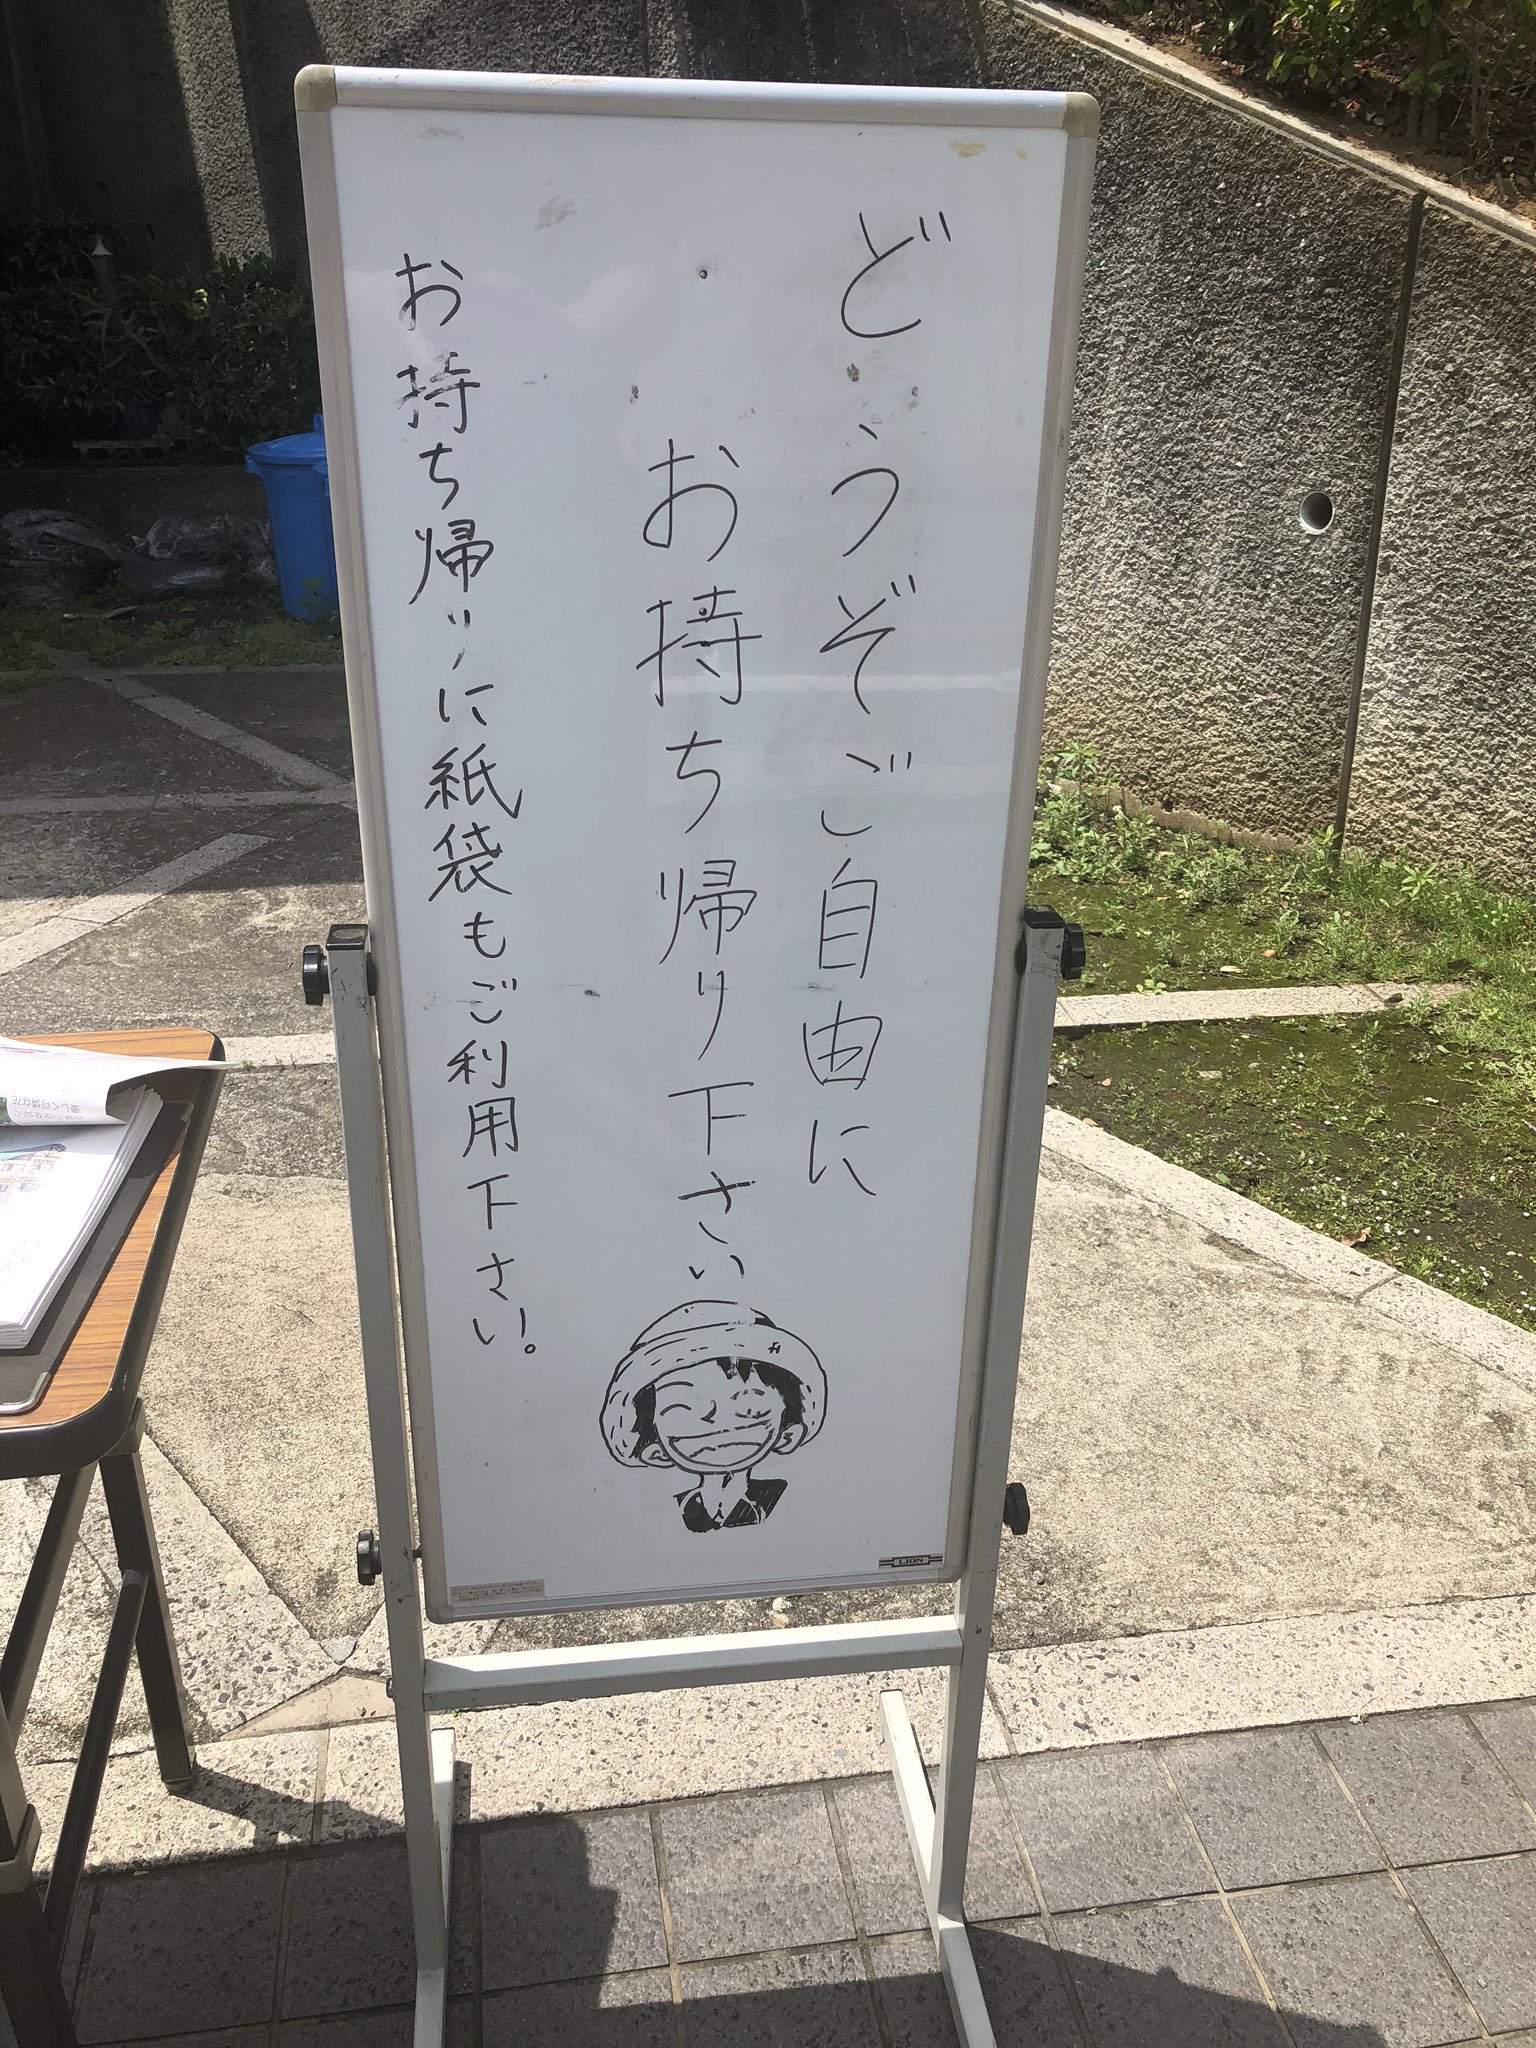 どうぞご自由に
お持ち帰り下さい
お持ち帰りに紙袋もご利用下さい。
LION